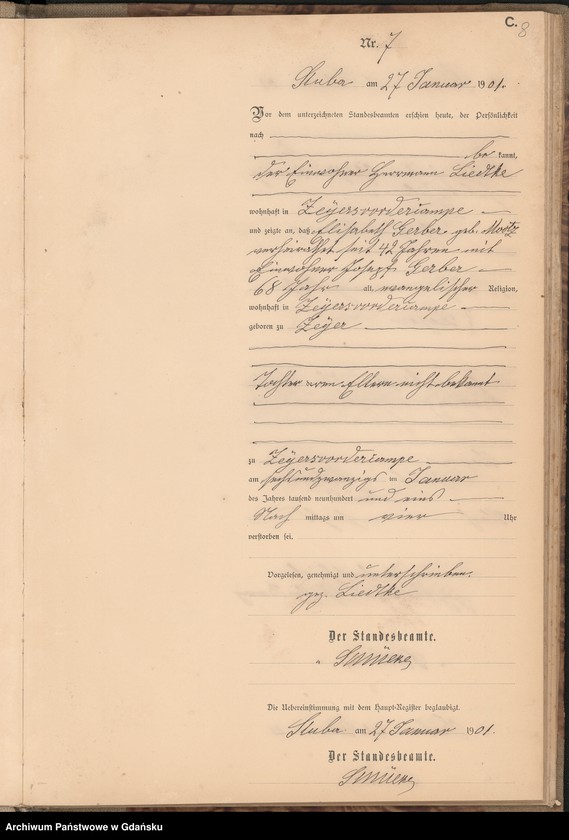 C. 8
Nr. 7
Stuba am 27 Januar 1901.
Vor dem unterzeichneten Standesbeamten erschien heute, der Persönlichkeit
nach
bekannt,
der Einwohner Herrmann Liedtke
wohnhaft in Zeyersvordercampe
und zeigte an, daß Elisabeth Gerber, geb. Mootz
verheirathet seit 42 Jahren mit
Einwohner Joseph Gerber
68 Jahr alt, evangelischer Religion,
wohnhaft in Zeyersvordercampe
geboren zu Zeyer
Tochter von Eltern nicht bekannt
zu Zeyersvordercampe
am sechsundzwanzigs ten Januar
des Jahres tausend neunhundert und eins
Nach mittags um vier Uhr
verstorben sei.
Vorgelesen, genehmigt und unterschrieben.
gez. Liedtke
Der Standesbeamte.
Die Uebereinstimmung mit dem Haupt-Register beglaubigt.
Stuba am 27 Januar 1901.
Der Standesbeamte.
Archiwum Państwowe w Gdańsku